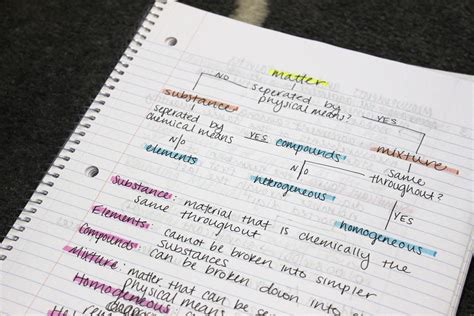 matter
NO seperated by physical means? YES
substance
mixture
seperated by chemical means
YES compounds
same throughout?
NO
elements
NO
heterogeneous
YES
homogeneous
Substance: material that is chemically the
same throughout
Elements: cannot be broken into simpler
substances
Compounds: can be broken down into
Mixture: matter that can be
physical means
Homogeneous